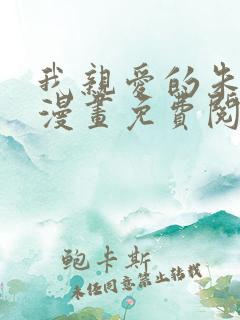 我親愛的朱
漫畫免費閱
鮑卡斯
未经同意禁止转载